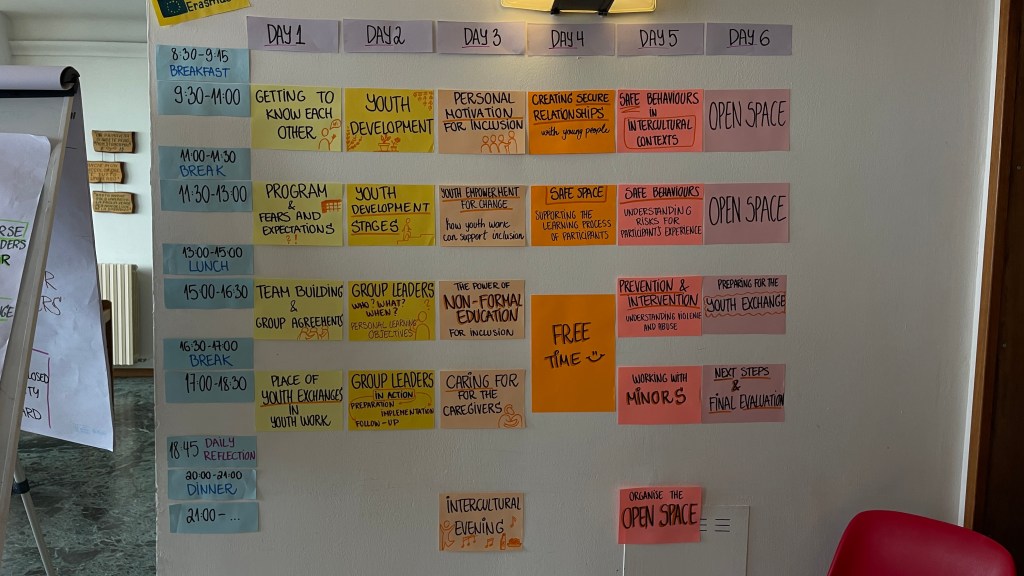 Erasmus+
DAY 1
DAY 2
DAY 3
DAY 4
DAY 5
DAY 6
8:30-9:15
BREAKFAST
9:30-11:00
GETTING TO
KNOW EACH
OTHER
YOUTH
DEVELOPMENT
PERSONAL
MOTIVATION
FOR INCLUSION
CREATING SECURE
RELATIONSHIPS
with young people
SAFE BEHAVIOURS
IN
INTERCULTURAL
CONTEXTS
OPEN SPACE
11:00-11:30
BREAK
11:30-13:00
PROGRAM
&
FEARS AND
EXPECTATIONS
?!
YOUTH
DEVELOPMENT
STAGES
YOUTH EMPOWERMENT
FOR CHANGE
how youth work
can support inclusion
SAFE SPACE
SUPPORTING THE
LEARNING PROCESS
OF PARTICIPANTS
SAFE BEHAVIOURS
UNDERSTANDING
RISKS FOR
PARTICIPANTS EXPERIENCE
OPEN SPACE
13:00-15:00
LUNCH
15:00-16:30
TEAM BUILDING
&
GROUP AGREEMENTS
GROUP LEADERS
WHO? WHAT?
WHEN?
PERSONAL LEARNING
OBJECTIVES
THE POWER OF
NON-FORMAL
EDUCATION
FOR INCLUSION
FREE
TIME
PREVENTION &
INTERVENTION
UNDERSTANDING VIOLENCE
AND ABUSE
PREPARING FOR THE
YOUTH EXCHANGE
16:30-17:00
BREAK
17:00-18:30
PLACE OF
YOUTH EXCHANGES
IN
YOUTH WORK
GROUP LEADERS
IN ACTION
PREPARATION
IMPLEMENTATION
FOLLOW-UP
CARING FOR
FOR THE
CAREGIVERS
WORKING WITH
MINORS
NEXT STEPS
&
FINAL EVALUATION
18:45 DAILY
REFLECTION
20:00-21:00
DINNER
21:00-...
INTERCULTURAL
EVENING
ORGANISE THE
OPEN SPACE